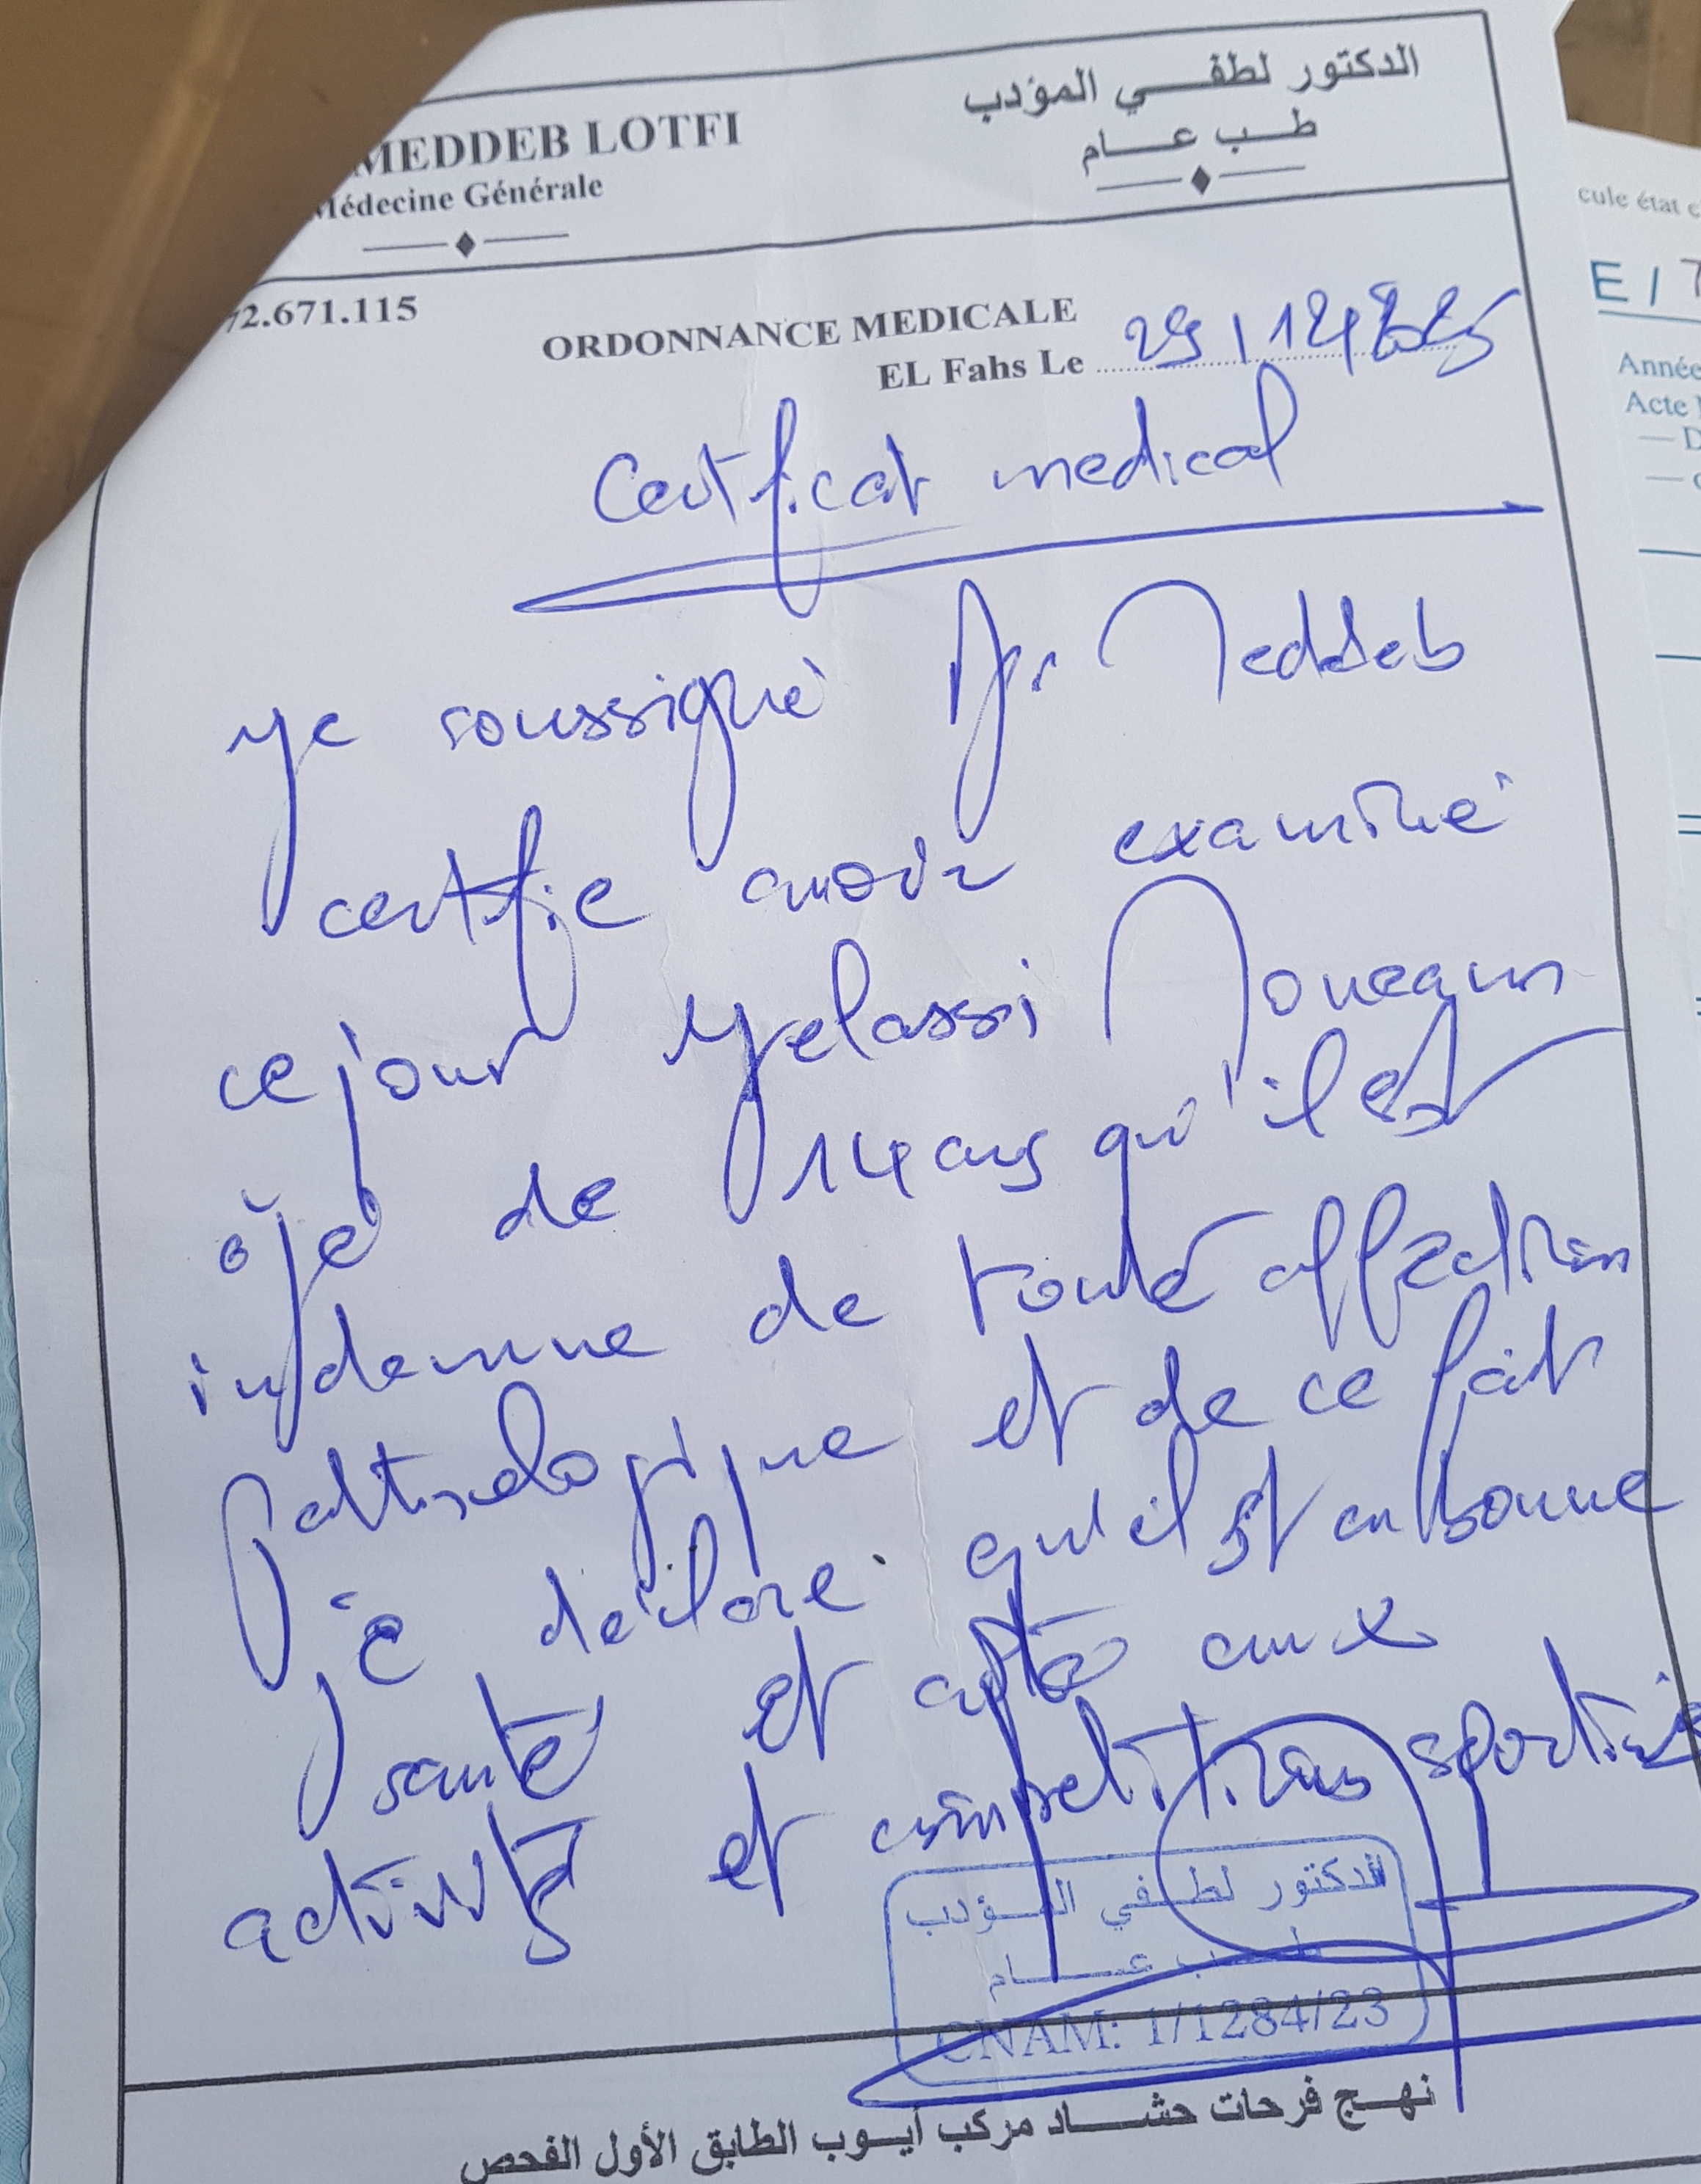 MEDDEB LOTFI
الدكتور لطفي المؤدب
Médecine Générale
طب عام
72.671.115
ORDONNANCE MEDICALE
EL Fahs Le 29/12/2025
Certificat medical
Je soussigné Dr Meddeb
certifie avoir examiné
ce jour Jelassi
âgé de 14 ans qu'il est
indemne de toute affection
pathologique et de ce fait
je déclare qu'il est en bonne
santé et apte aux
activités et compétitions sportives
الدكتور لطفي المؤدب
طب عام
CNAM: 1/1284/23
نهج فرحات حشاد مركب أيوب الطابق الأول الفحص
cule état
E/7
Année
Acte